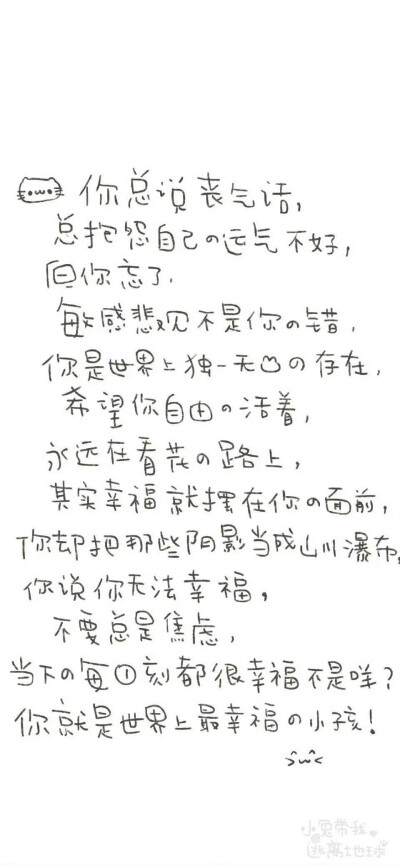 你总说丧气话，
总抱怨自己の运气不好，
但你忘了．
敏感悲观不是你の错，
你是世界上独一无二の存在，
希望你自由の活着，
永远在看花の路上，
其实幸福就摆在你の面前，
你却把那些阴影当成山川瀑布，
你说你无法幸福，
不要总是焦虑，
当下の每①刻都很幸福不是咩？
你就是世界上最幸福の小孩！
小兔帶我
逃离地球